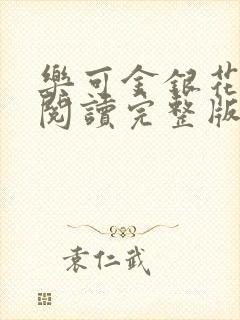 樂可金銀花
閱讀完整版
袁仁武